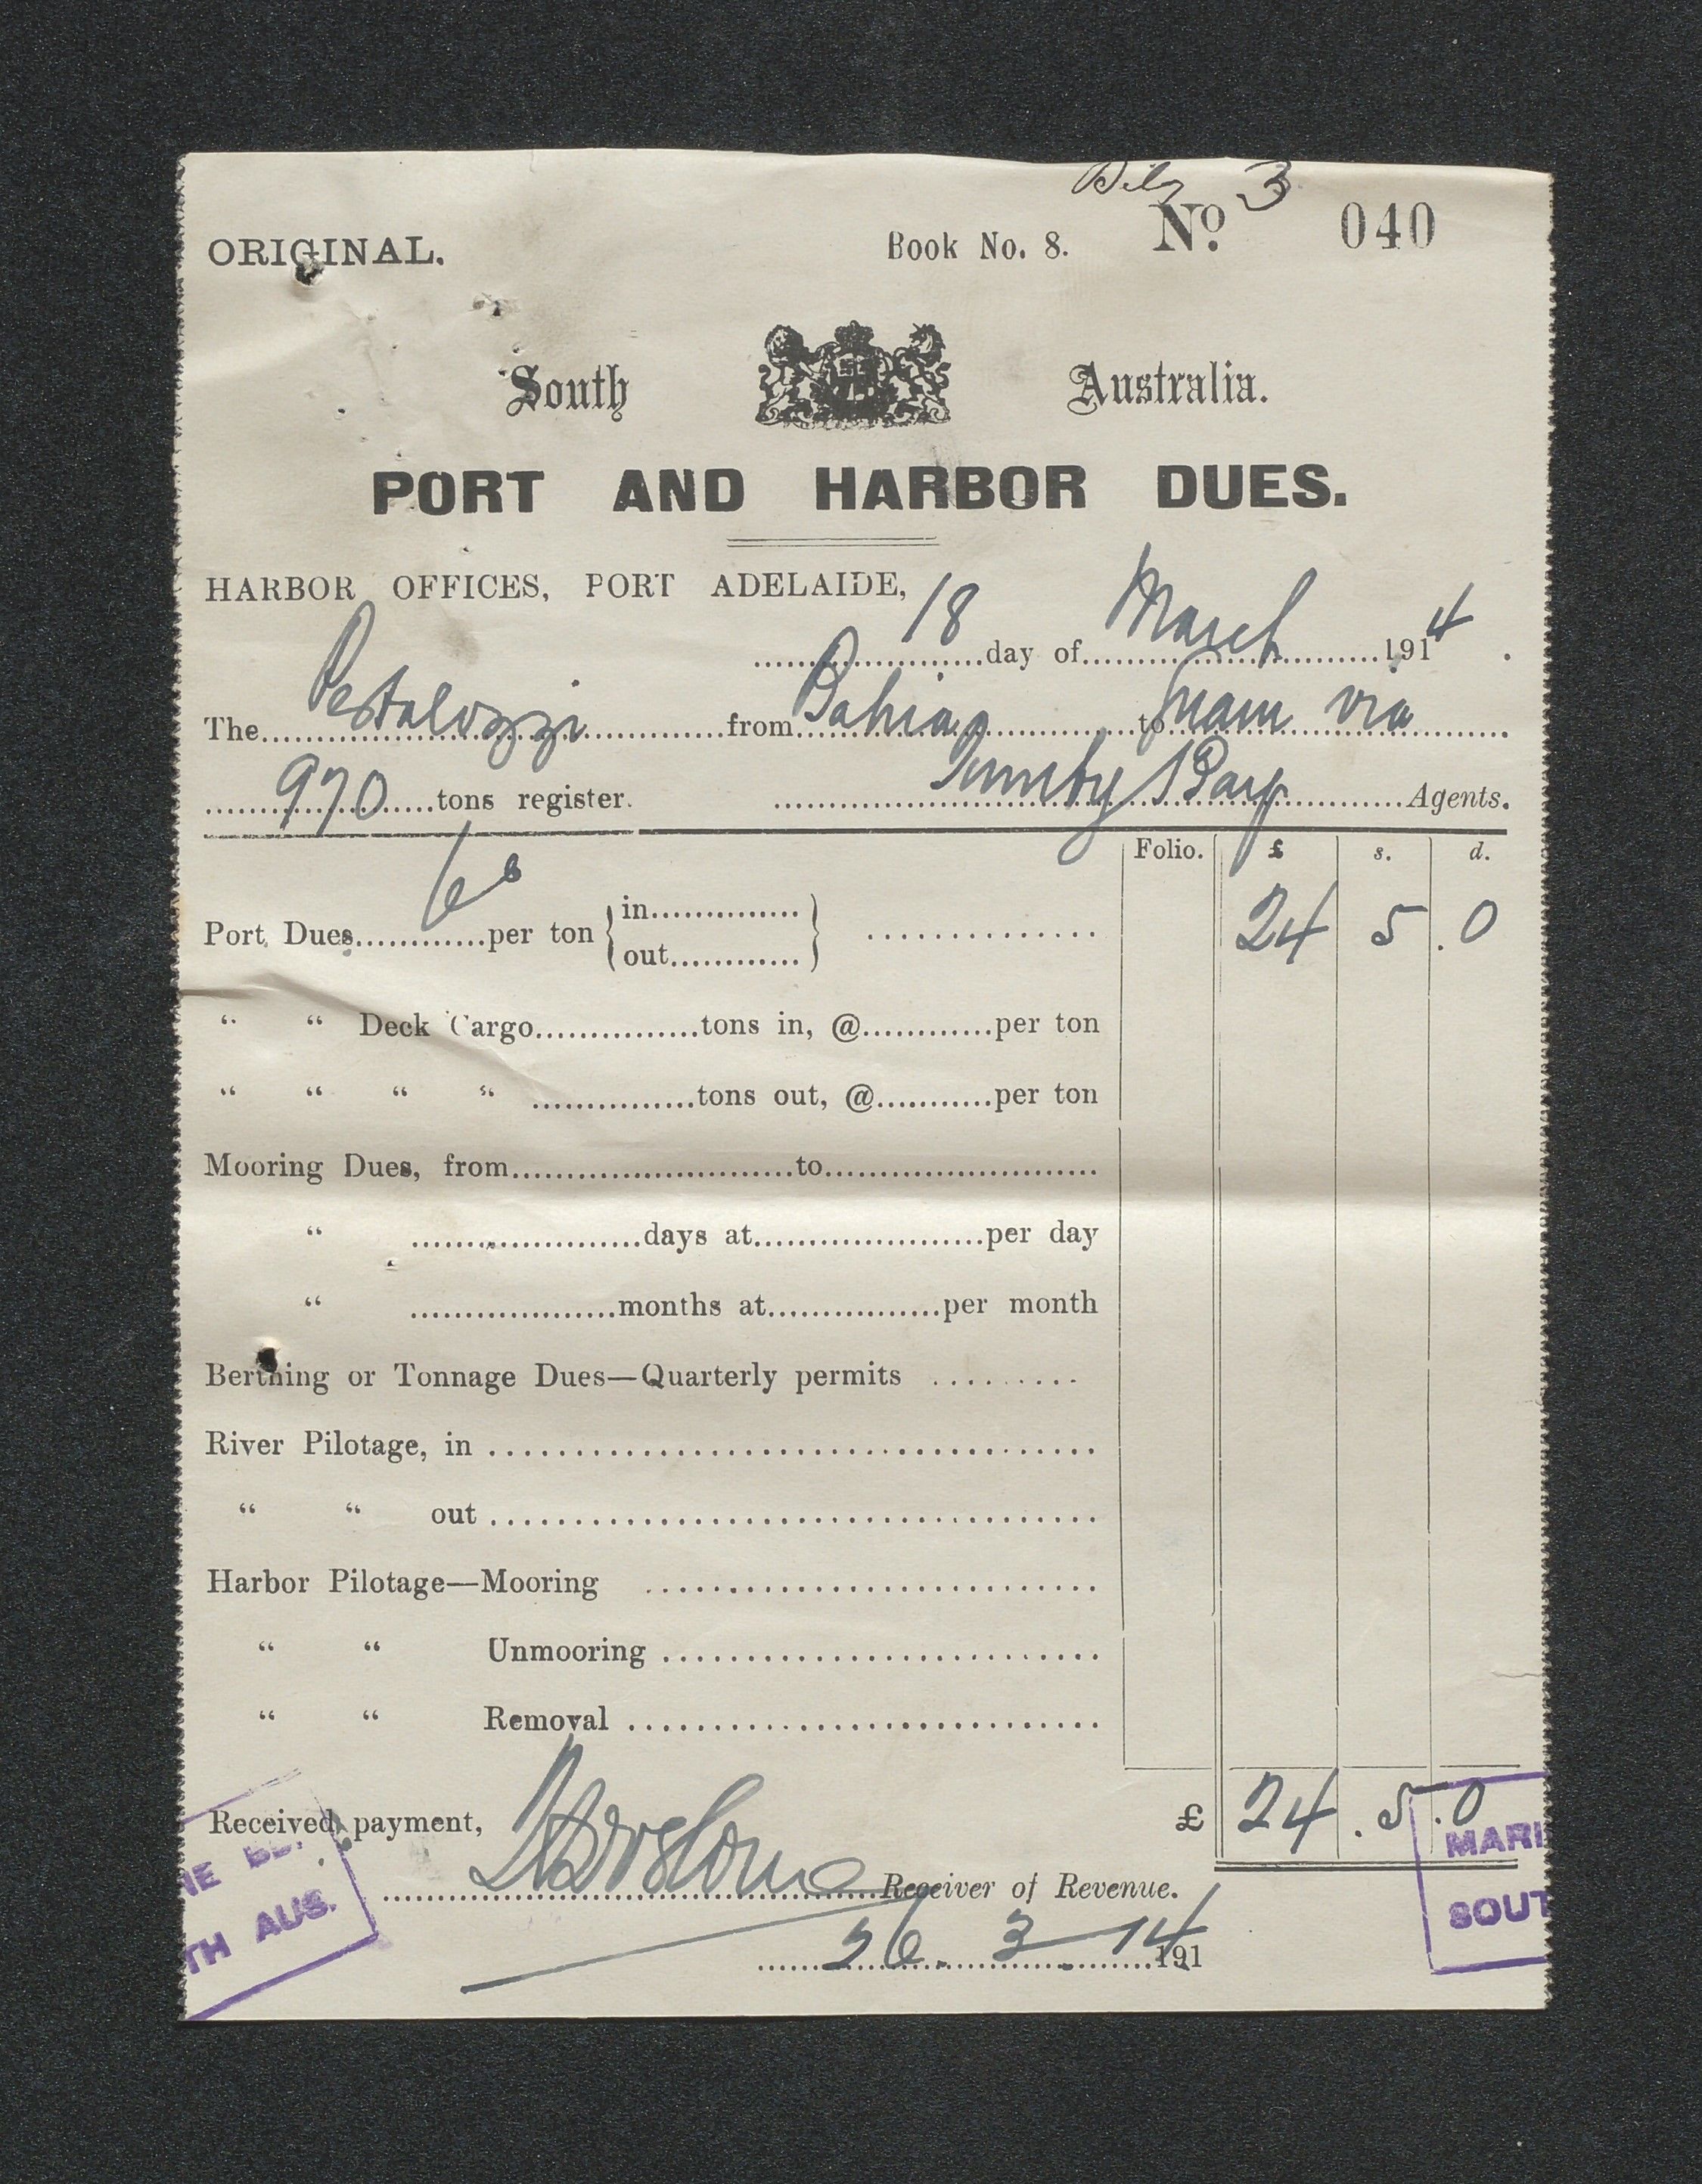 3
ORIGINAL. Book No. 8. No. 040
South Australia.
PORT AND HARBOR DUES.
HARBOR OFFICES, PORT ADELAIDE,
18 day of March 1914.
The Pestalozzi from Bahia to Guam via
970 tons register. Tumby Bay Agents.
Folio. £ s. d.
Port Dues 6d per ton { in out } 24 5 . 0
“ “ Deck Cargo tons in, @ per ton
“ “ “ “ tons out, @ per ton
Mooring Dues, from to
“ days at per day
“ months at per month
Berthing or Tonnage Dues—Quarterly permits
River Pilotage, in
“ “ out
Harbor Pilotage—Mooring
“ “ Unmooring
“ “ Removal
Received payment, £ 24 . 5 . 0
Receiver of Revenue.
26. 3 - 14 191
NE BD.
TH AUS.
MARI
SOUT